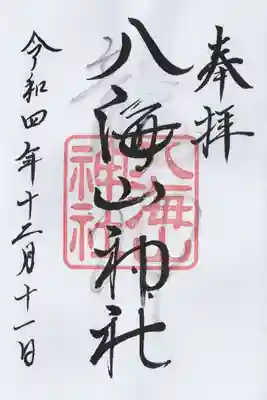 奉拝
八海山神社
八海山神社
令和四年十二月十一日